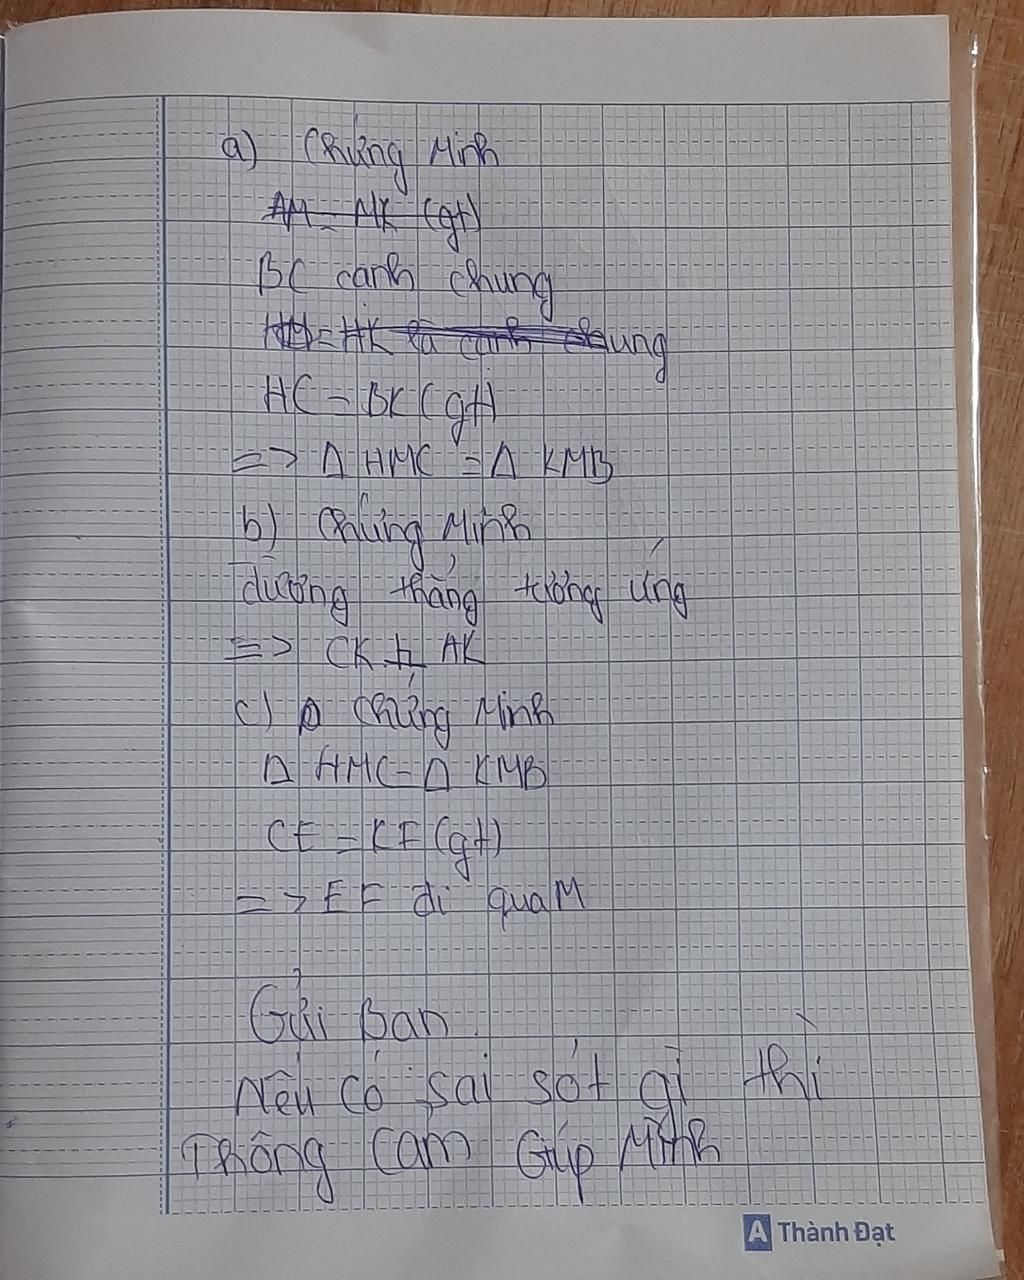 a) Chứng Minh
AM = MK (gt)
BC cạnh chung
HM = HK là cạnh chung
HC = BK (gt)
=> Δ HMC = Δ KMB
b) Chứng Minh
đường thẳng tương ứng
=> CK ⊥ AK
c) Chứng Minh
Δ HMC = Δ KMB
CE = KF (gt)
=> EF đi qua M
Gửi Bạn.
Nếu có sai sót gì thì
Thông cảm Giúp Mình
A Thành Đạt